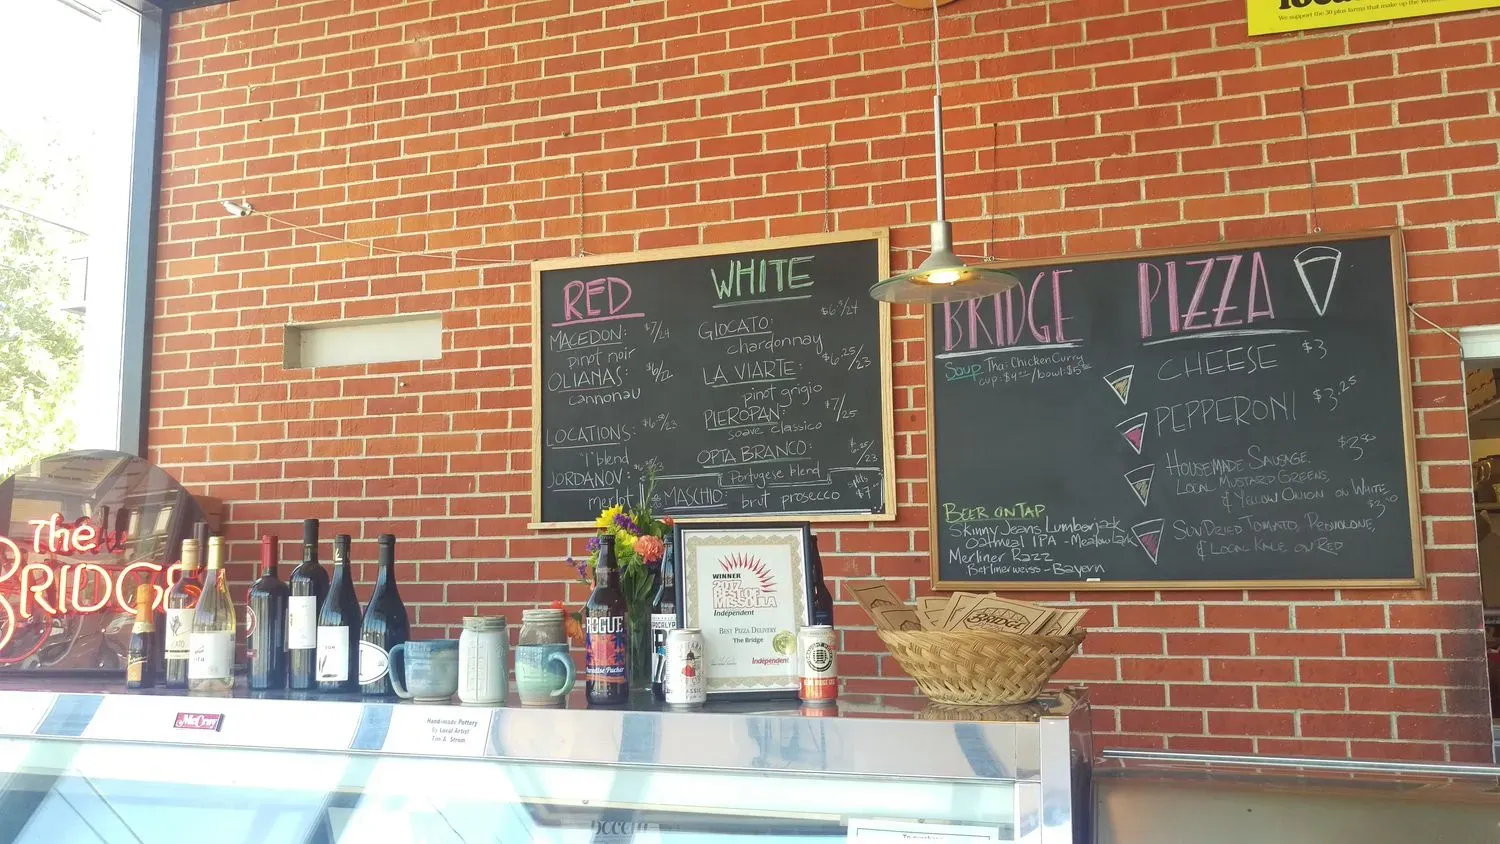 We support the 30 plus farms that make up the
RED
MACEDON: $7/24
pinot noir
OLIANAS: $6/22
cannonau
LOCATIONS:
"I" blend
JORDANOV:
merlot
WHITE
GIOCATO:
chardonnay
LA VIARTE: $6.25/23
pinot grigio
PIEROPAN: $7/25
soave classico
OPTA BRANCO: $6.25/23
Portugese blend
MASCHIO: brut prosecco splits
BRIDGE PIZZA
Soup Thai Chicken Curry
CHEESE $3
PEPPERONI $3.25
HOUSEMADE SAUSAGE,
LOCAL MUSTARD GREENS,
& YELLOW ONION ON WHITE
SUNDRIED TOMATO, PROVOLONE,
& LOCAL KALE ON RED
BEER ON TAP
Skinny Jeans Lumberjack
Oatmeal IPA - Meadowlark
Merliner Razz
Berlinerweiss - Bayern
The
BRIDGE
WINNER
2017
BEST OF
MISSOULA
Independent
BEST PIZZA DELIVERY
The Bridge
Independent
ROGUE
BRIDGE
McCray
Hand-made Pottery
By Local Artist